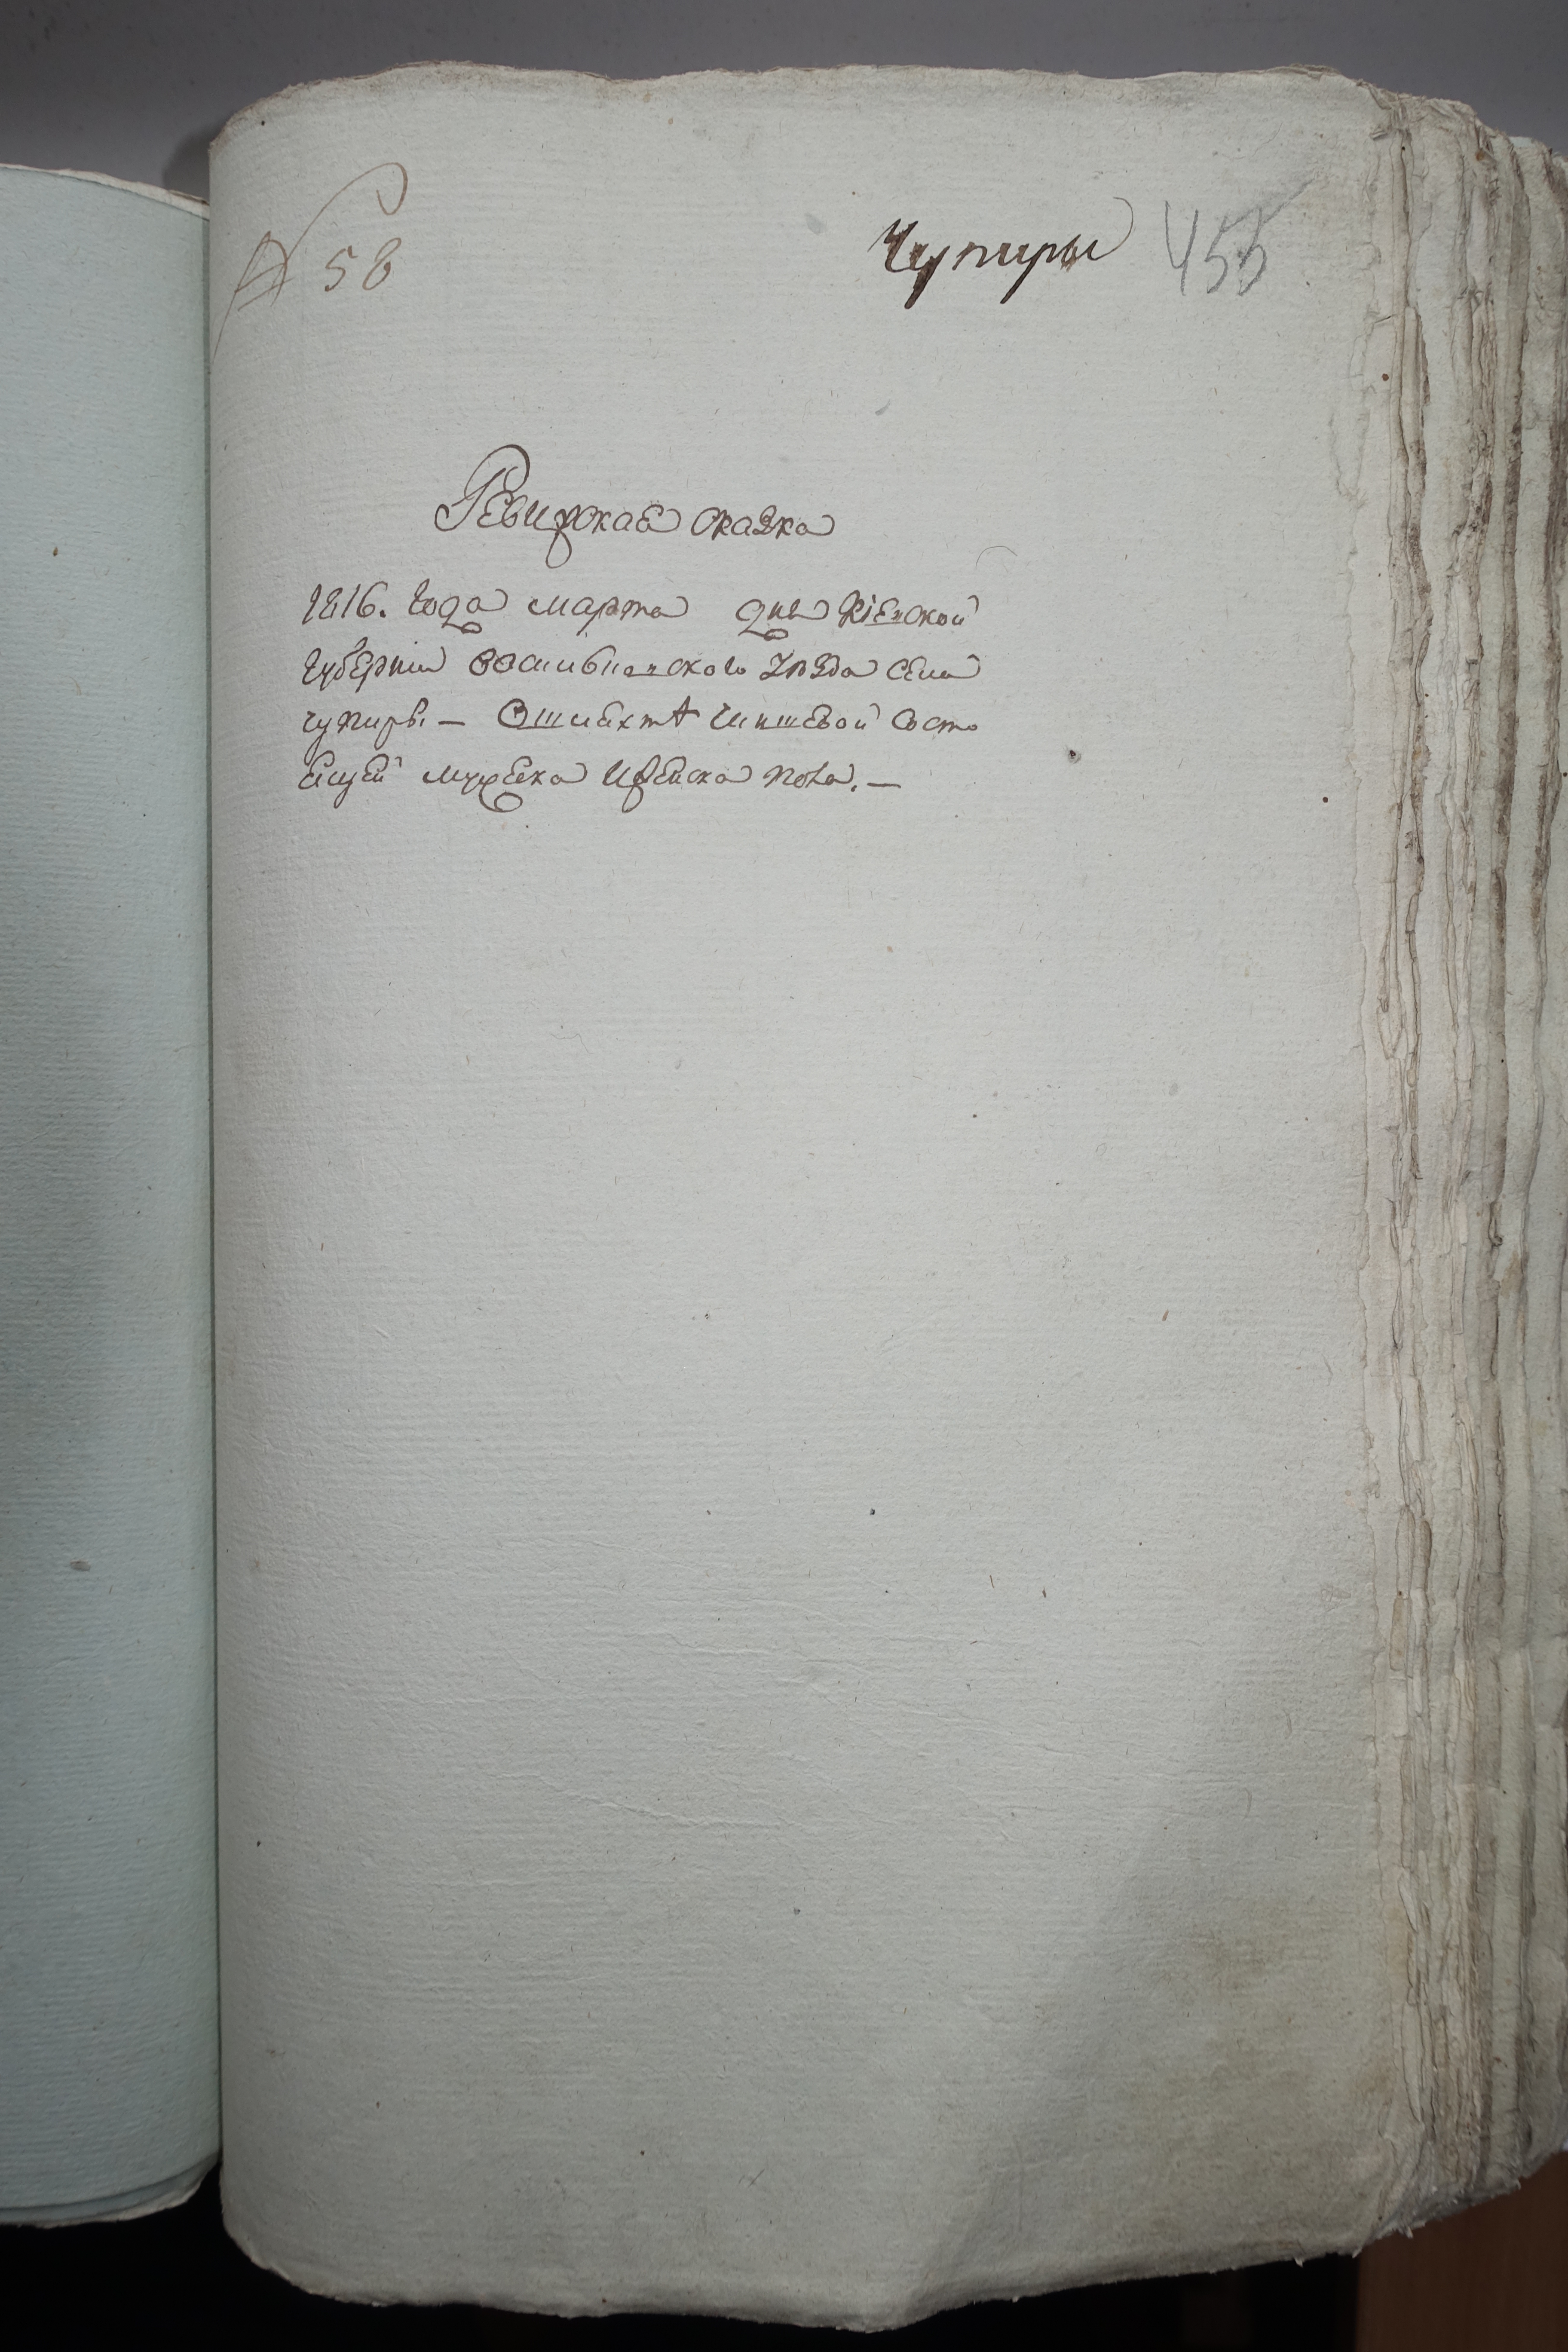 № 58
Чупиры 455
Ревизская сказка
1816. Года марта дня Кіевской
Губернии Васильковского Уезда Села
чупиръ. — Ошляхтѣ Чиншевой Состо
ещей мужеска Иженска пола. —